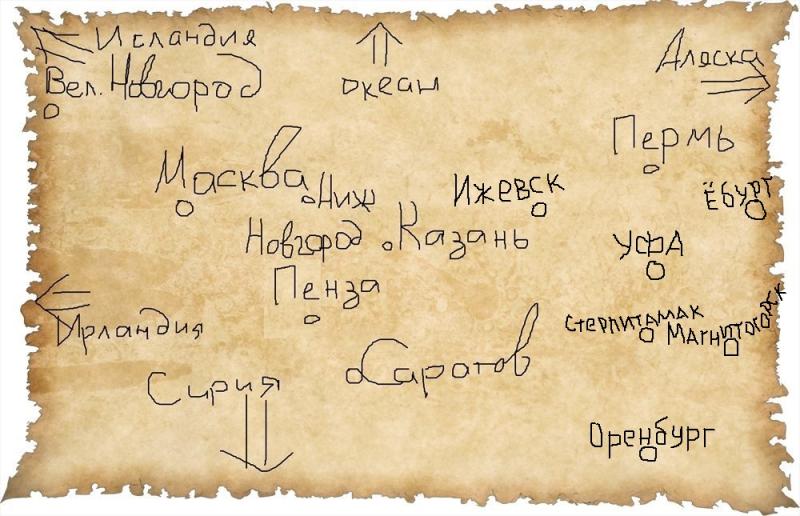 Исландия
океан
Аляска
Вел. Новгород
Пермь
Масква
Ниж
Новгород
Ижевск
Ёбург
Казань
Уфа
Пенза
Стерлитамак
Магнитогорск
Ирландия
Саратов
Сирия
Оренбург